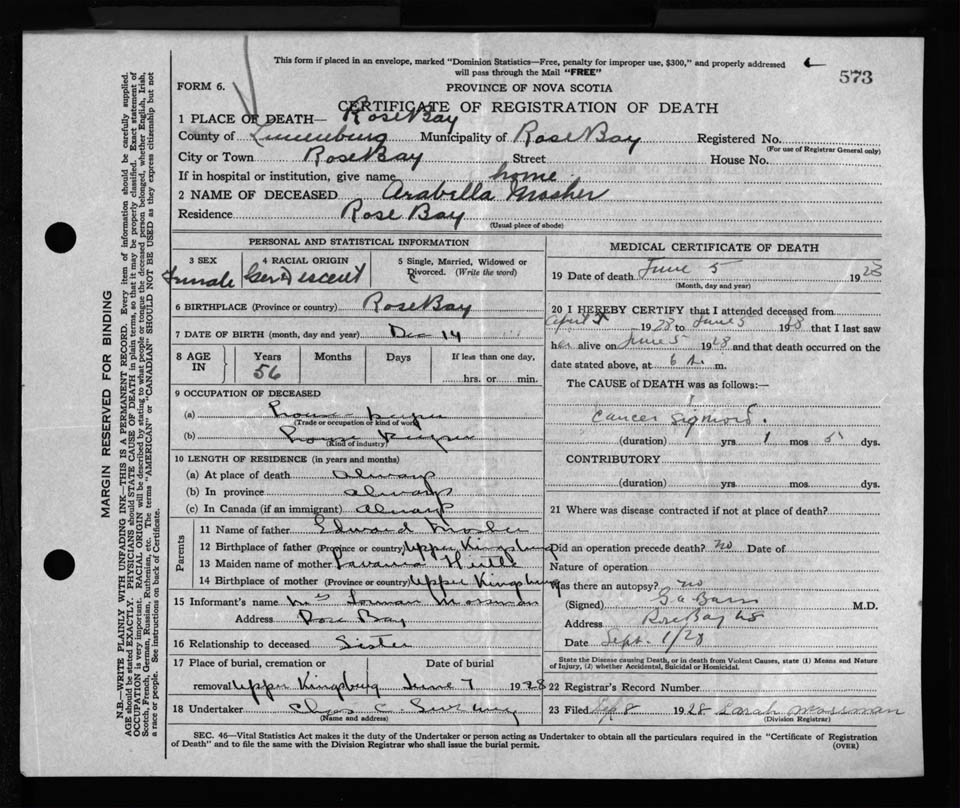 This form if placed in an envelope, marked "Dominion Statistics—Free, penalty for improper use, $300," and properly addressed
will pass through the Mail "FREE"
573
FORM 6.
PROVINCE OF NOVA SCOTIA
CERTIFICATE OF REGISTRATION OF DEATH
1 PLACE OF DEATH— Rose Bay
County of Lunenburg Municipality of Rose Bay Registered No.
(For use of Registrar General only)
City or Town Rose Bay Street House No.
If in hospital or institution, give name home
2 NAME OF DECEASED Arabella Mosher
Residence Rose Bay
(Usual place of abode)
PERSONAL AND STATISTICAL INFORMATION
3 SEX
Female
4 RACIAL ORIGIN
Ger Descent
5 Single, Married, Widowed or
Divorced. (Write the word)
6 BIRTHPLACE (Province or country) Rose Bay
7 DATE OF BIRTH (month, day and year) Dec 14
8 AGE IN
Years Months Days If less than one day,
56
hrs. or min.
9 OCCUPATION OF DECEASED
(a) house keeper
(Trade or occupation or kind of work)
(b) house keeper
(Kind of industry)
10 LENGTH OF RESIDENCE (in years and months)
(a) At place of death always
(b) In province always
(c) In Canada (if an immigrant) always
Parents
11 Name of father Edward Mosher
12 Birthplace of father (Province or country) Upper Kingsburg
13 Maiden name of mother Lavania Hirtle
14 Birthplace of mother (Province or country) Upper Kingsburg
15 Informant's name Mrs Mosman
Address Rose Bay
16 Relationship to deceased Sister
17 Place of burial, cremation or Date of burial
removal Upper Kingsburg June 7 1928
18 Undertaker Chas C.
(Name and address)
MEDICAL CERTIFICATE OF DEATH
19 Date of death June 5 1928
(Month, day and year)
20 I HEREBY CERTIFY that I attended deceased from
April 1928 to June 5 1928 that I last saw
her alive on June 5 1928 and that death occurred on the
date stated above, at 6 A. m.
The CAUSE of DEATH was as follows:—
Cancer Sigmoid.
(duration) yrs. 1 mos 5 dys.
CONTRIBUTORY
(duration) yrs. mos. dys.
21 Where was disease contracted if not at place of death?
Did an operation precede death? no Date of
Nature of operation
Was there an autopsy? no
(Signed) M.D.
Address Rose Bay NS
Date Sept. 1/28
State the Disease causing Death, or in death from Violent Causes, state (1) Means and Nature
of Injury, (2) whether Accidental, Suicidal or Homicidal.
22 Registrar's Record Number
23 Filed Sep 8 1928 Sarah Mossman
(Division Registrar)
SEC. 46—Vital Statistics Act makes it the duty of the Undertaker or person acting as Undertaker to obtain all the particulars required in the "Certificate of Registration
of Death" and to file the same with the Division Registrar who shall issue the burial permit.
(OVER)
MARGIN RESERVED FOR BINDING
N.B.—WRITE PLAINLY WITH UNFADING INK—THIS IS A PERMANENT RECORD. Every item of information should be carefully supplied.
AGE should be stated EXACTLY. PHYSICIANS should STATE CAUSE OF DEATH in plain terms, so that it may be properly classified. Exact statement of
OCCUPATION is very important. RACIAL ORIGIN will be described by stating to what people or tongue the deceased person belonged, whether English, Irish,
Scotch, French, German, Russian, Ruthenian, etc. The terms "AMERICAN" or "CANADIAN" SHOULD NOT BE USED as they express citizenship but not
a race or people. See instructions on back of Certificate.